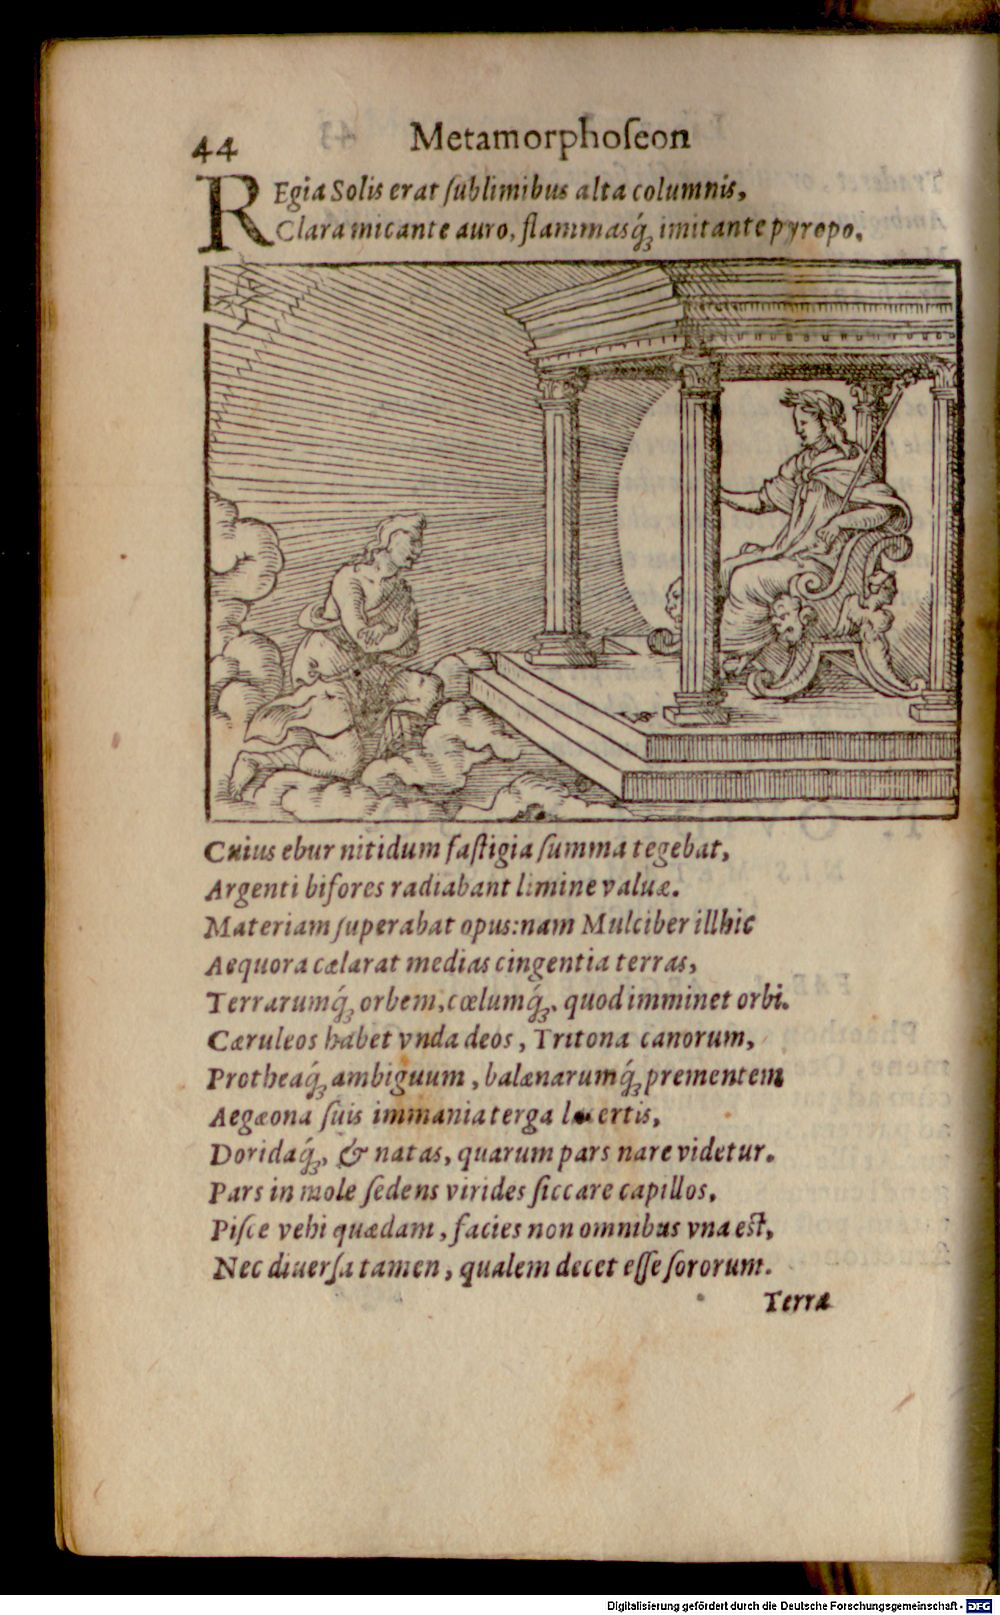 44 Metamorphoſeon
REgia Solis erat ſublimibus alta columnis,
Clara micante auro, flammasq́ꝫ imitante pyropo.
Cuius ebur nitidum faſtigia ſumma tegebat,
Argenti bifores radiabant limine valuæ.
Materiam ſuperabat opus: nam Mulciber illhic
Aequora cælarat medias cingentia terras,
Terrarumq́ꝫ orbem, cœlumq́ꝫ, quod imminet orbi.
Cæruleos habet vnda deos, Tritona canorum,
Protheaq́ꝫ ambiguum, balænarumq́ꝫ prementem
Aegæona ſuis immania terga lacertis,
Doridaq́ꝫ, & natas, quarum pars nare videtur.
Pars in mole ſedens virides ſiccare capillos,
Piſce vehi quædam, facies non omnibus vna eſt,
Nec diuerſa tamen, qualem decet eſſe ſororum.
Terræ
Digitalisierung gefördert durch die Deutsche Forschungsgemeinschaft - DFG